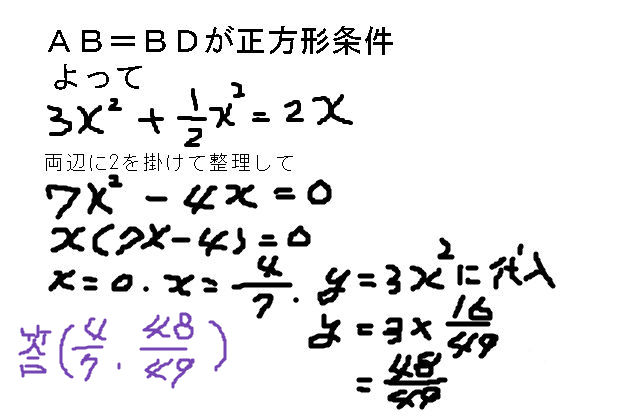 ＡＢ＝ＢＤが正方形条件
よって
3x² + 1/2 x² = 2x
両辺に2を掛けて整理して
7x² - 4x = 0
x(7x-4)=0
x=0. x=4/7. y=3x²に代入
y=3×16/49
=48/49
答(4/7. 48/49)